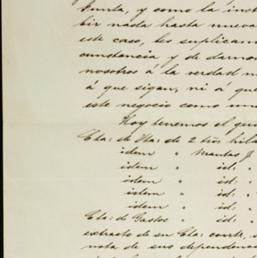 Junta, y como la inst
bir nada hasta nueva
este caso, les suplicam
cunstancia y de darnos
nosotros á la verdad n
á que sigan, ni á que
este negocio como una
Hoy tenemos el gu
Cta: de Vta: de 2 %s hila
idem " Mantas J
idem " id:
idem " id:
idem " id:
idem " id:
Cta: de Gastos " id:
extracto de su Cta: corrte, s
nota de sus dependenc